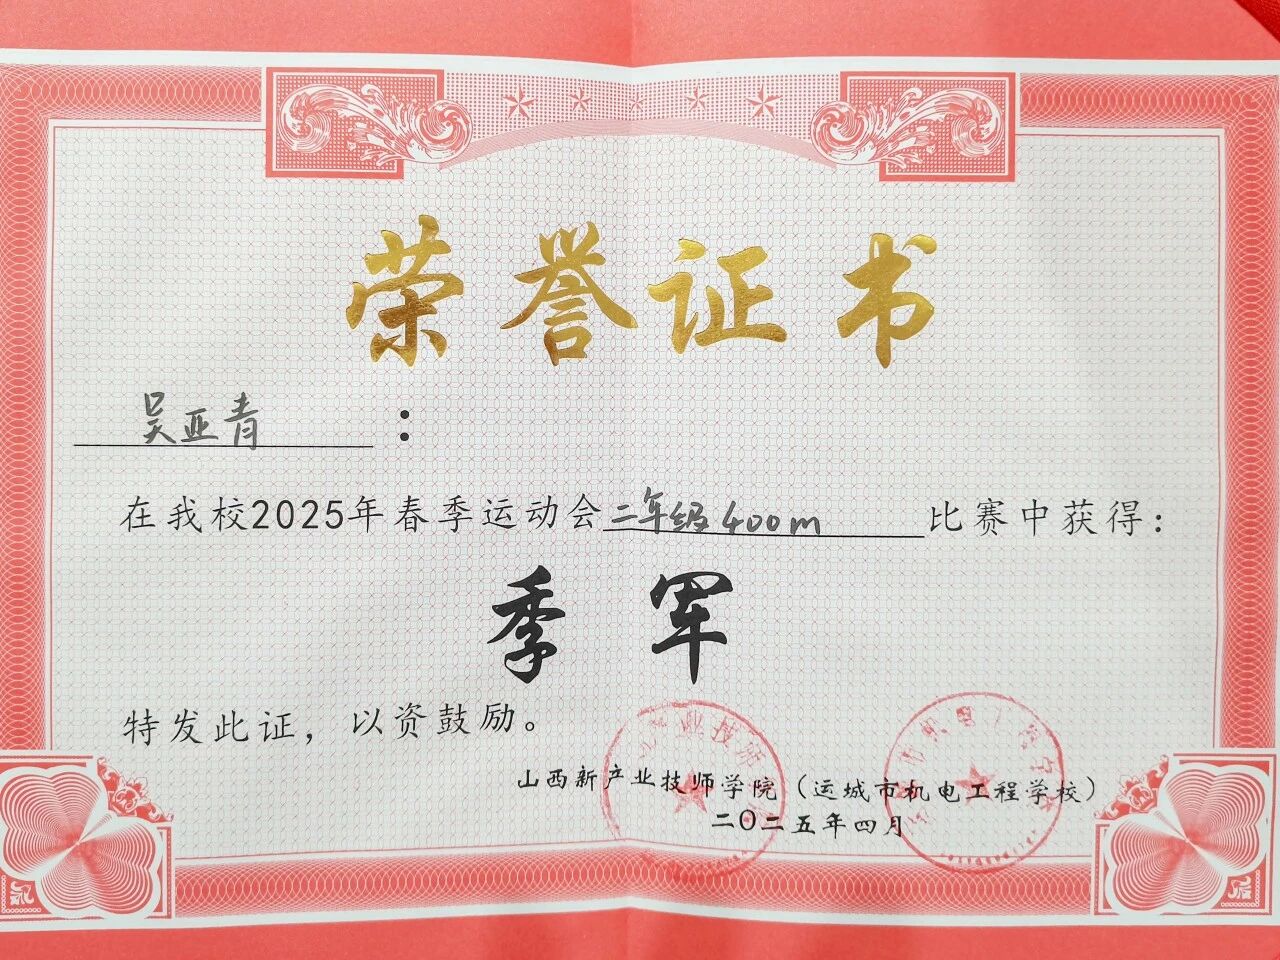 荣誉证书
吴亚青：
在我校2025年春季运动会二年级400m比赛中获得：
季军
特发此证，以资鼓励。
山西新产业技师学院（运城市机电工程学校）
二〇二五年四月